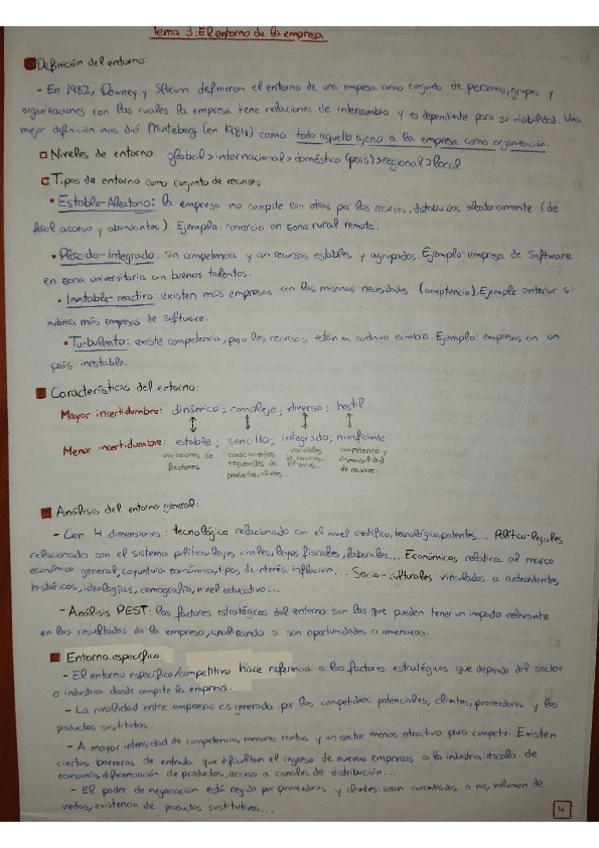 Tema 3: El entorno de la empresa
Definición del entorno:
- En 1982, Downey y Slocum definieron el entorno de una empresa como conjunto de personas, grupos y
organizaciones con las cuales la empresa tiene relaciones de intercambio y es dependiente para su viabilidad. Una
mejor definición nos dió Minteberg (en 1984) como todo aquello ajeno a la empresa como organización.
Niveles de entorno global > internacional > doméstico (país) > regional > local
Tipos de entorno como conjunto de recursos
• Estable-Aleatorio: la empresa no compite con otras por los recursos, distribuidos aleatoriamente (de
fácil acceso y abundantes). Ejemplo: comercio en zona rural remota.
• Plácido-Integrado: sin competencia y con recursos estables y agrupados. Ejemplo: empresa de software
en zona universitaria con buenos talentos.
• Inestable-reactivo: existen más empresas con las mismas necesidades (competencia). Ejemplo anterior si
hubiera más empresas de software.
• Turbulento: existe competencia, pero los recursos están en continuo cambio. Ejemplo: empresas en un
país inestable.
Características del entorno:
Mayor incertidumbre: dinámico; complejo; diverso; hostil
Menor incertidumbre: estable; sencillo; integrado; munificente
variaciones de factores
conocimientos requeridos de productos, clientes...
variables
competencia y disponibilidad de recursos.
Análisis del entorno general:
- Con 4 dimensiones: tecnológico relacionado con el nivel científico, tecnológico, patentes... Político-legales
relacionado con el sistema político: leyes civiles, leyes fiscales, laborales... Económicos, relativa al marco
económico general, coyuntura económica, tipos de interés, inflación... Socio-culturales vinculados a antecedentes
históricos, ideologías, demografía, nivel educativo...
- Análisis PEST: los factores estratégicos del entorno son los que pueden tener un impacto relevante
en los resultados de la empresa, analizando si son oportunidades o amenazas.
Entorno específico
- El entorno específico/competitivo hace referencia a los factores estratégicos que depende del sector
o industria donde compite la empresa.
- La rivalidad entre empresas es generada por los competidores potenciales, clientes, proveedores y los
productos sustitutos.
- A mayor intensidad de competencia, menores rentas y un sector menos atractivo para competir. Existen
ciertas barreras de entrada que dificultan el ingreso de nuevas empresas a la industria: escala de
economía, diferenciación de productos, acceso a canales de distribución...
- El poder de negociación está regido por proveedores y clientes: sean concentrados o no, volumen de
ventas, existencia de productos sustitutivos...
4